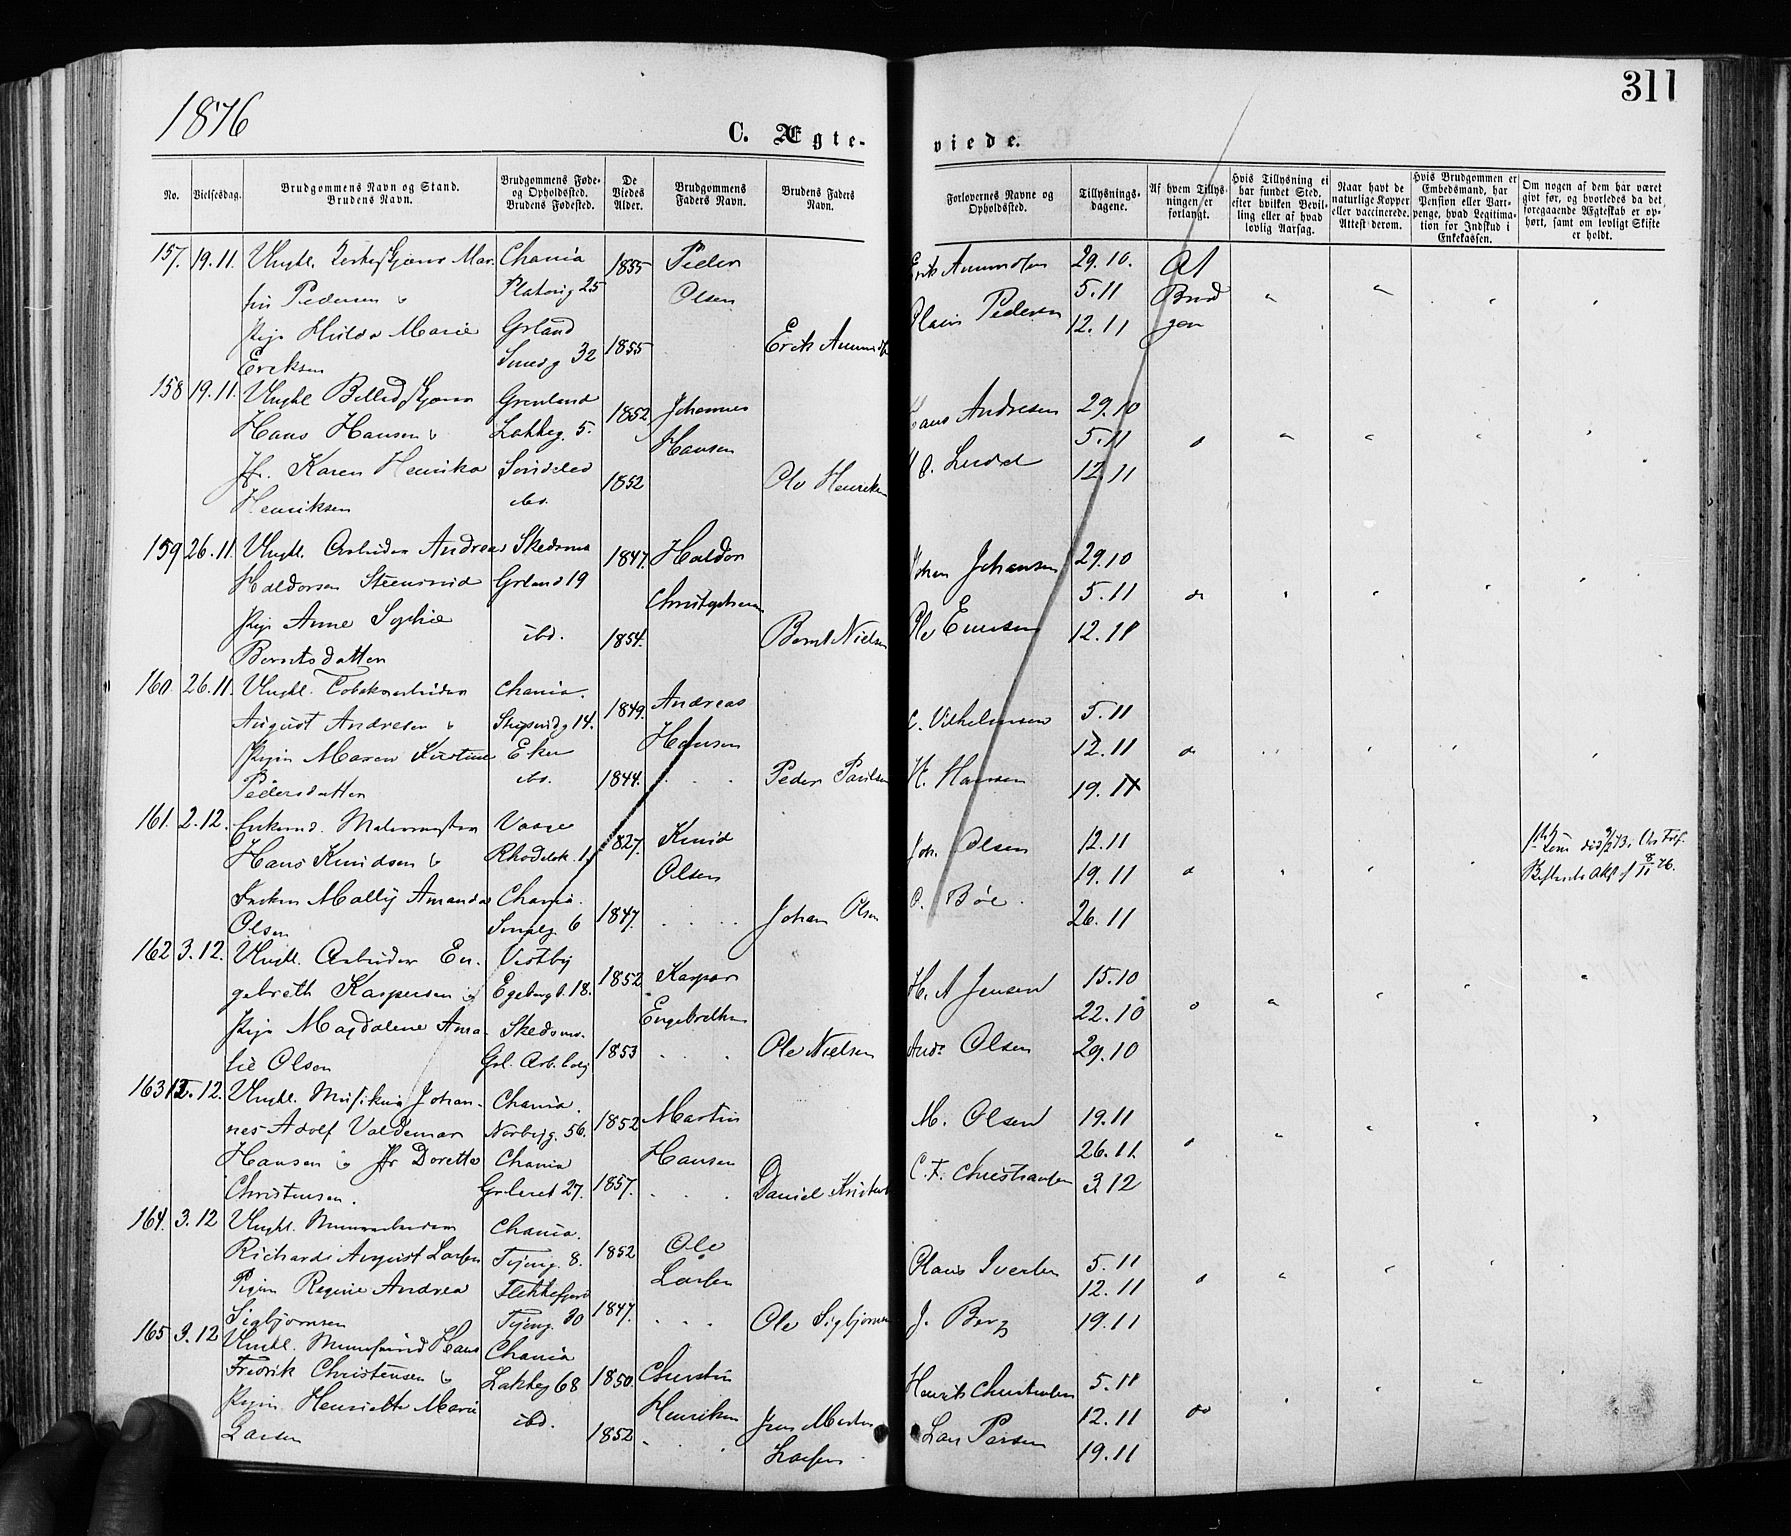 1876
C. Ægte-
viede.
311
No.
Vielsesdag.
Brudgommens Navn og Stand.
Brudens Navn.
Brudgommens Føde-
og Opholdssted.
Brudens Fødested.
De
Viedes
Alder.
Brudgommens
Faders Navn.
Brudens Faders
Navn.
Forlovernes Navne og
Opholdssted.
Tillysnings-
dagene.
Af hvem Tillys-
ningen er
forlangt.
Hvis Tillysning ei
har fundet Sted,
efter hvilken Bevil-
ling eller af hvad
lovlig Aarsag.
Naar havt de
naturlige Kopper
eller vaccinerede.
Attest derom.
Hvis Brudgommen er
Embedsmand, har
Pension eller Vart-
penge, hvad Legitima-
tion for Indskud i
Enkekassen.
Om nogen af dem har været
givt før, og hvorledes da det
foregaaende Ægteskab er op-
hørt, samt om lovligt Skifte
er holdt.
157. 19.11. Ungkl. Mar- Chania 1855 Peder
Pedersen & Platovig 25 Olsen
Pige Hulda Marie Grland 1855
Eriksen Smedg 32 Erik Amunds
Erik Amundsen 29.10. Af
Claus Pedersen 5.11 Brud
12.11 gom
158 19.11. Ungkl Grønland 1852 Johannes
Hans Hansen & Lakkeg. 5. Hansen
Jfr. Karen Henrika Søndeled 1852 Ole Henriksen
Henriksen ibd.
Hans Andresen 29.10
Lund 5.11 do
12.11
159 26.11. Ungkl. Arbeider Andreas Skedsmo 1847. Haldor
Haldorsen Steensrud Grland 19 Christophersen
Pige Anne Sophie ibd. 1854. Bernt Nielsen
Berntsdatter
Johan Johansen 29.10
Ole Evensen 5.11 do
12.11
160. 26.11. Ungkl. Tobaksarbeider Chania. 1849. Andreas
August Andresen & Skipperg 14. Hansen
Pigen Maren Kirstine Eker 1844. Peder Paulsen
Pedersdatter ibd.
C. Vilhelmsen 5.11
H. Hansen 12.11 do
19.11
161. 2.12. Enkemd. Malermester Vaage 1827. Knud
Hans Knudsen & Rhodeløk. 1. Olsen
Frøken Mally Amanda Chania. 1847. Johan Olsen
Olsen 6
Joh. Olsen 12.11
C. Bøe. 19.11 do
26.11
162 3.12. Ungkl. Arbeider En- Vestby 1852 Kasper
gebreth Kaspersen & Egebergl. 18. Engebrethsen
Pige Magdalene Ama- Skedsmo. 1853 Ole Nielsen
lie Olsen Grl. Arb. bolig
H. A Jensen 15.10
Ands Olsen 22.10 do
29.10
163 12. Ungkl. Musikus Johan- Chania. 1852 Martin
nes Adolf Valdemar Norbyg. 56. Hansen
Hansen & Jfr Doretta Chania 1857. Daniel
Christensen. Grleret 27.
M. Olsen 19.11
C. F. Christiansen 26.11. do
3.12
164. 3.12 Ungkl. Chania. 1852 Ole
Richard August Larsen Tøieng. 8. Larsen
Pigen Regine Andrea Flekkefjord 1847. Ole Sigbjørnsen
Sigbjørnsen Tøieng. 30
Claus Iversen 5.11
J. Berg 12.11 do
19.11
165 3.12 Ungkl. Murersvend Hans Chania 1850. Christen
Fredrik Christensen & Lakkeg 68 Henriksen
Pigen Henriette Marie ibd. 1852 Jens Martin
Larsen Larsen
Henrik Christensen 5.11
Lars Larsen 12.11 do
19.11